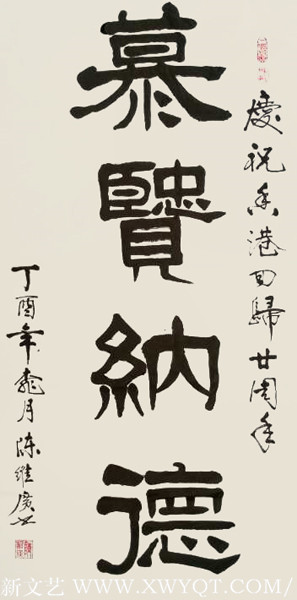 慶祝香港回歸廿周年
慕贒納德
丁酉年龍月陈維廣书
新文艺 WWW.XWYQT.COM/